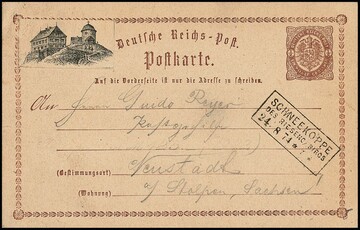 Deutsche Reichs-Post.
Postkarte.
Auf die Vorderseite ist nur die Adresse zu schreiben.
An Herrn Guido
SCHNEEKOPPE
DES RIESENGEBIRGS
24. 8. 74
(Bestimmungsort) Neustadt
(Wohnung) b/ Stolpen, Sachsen